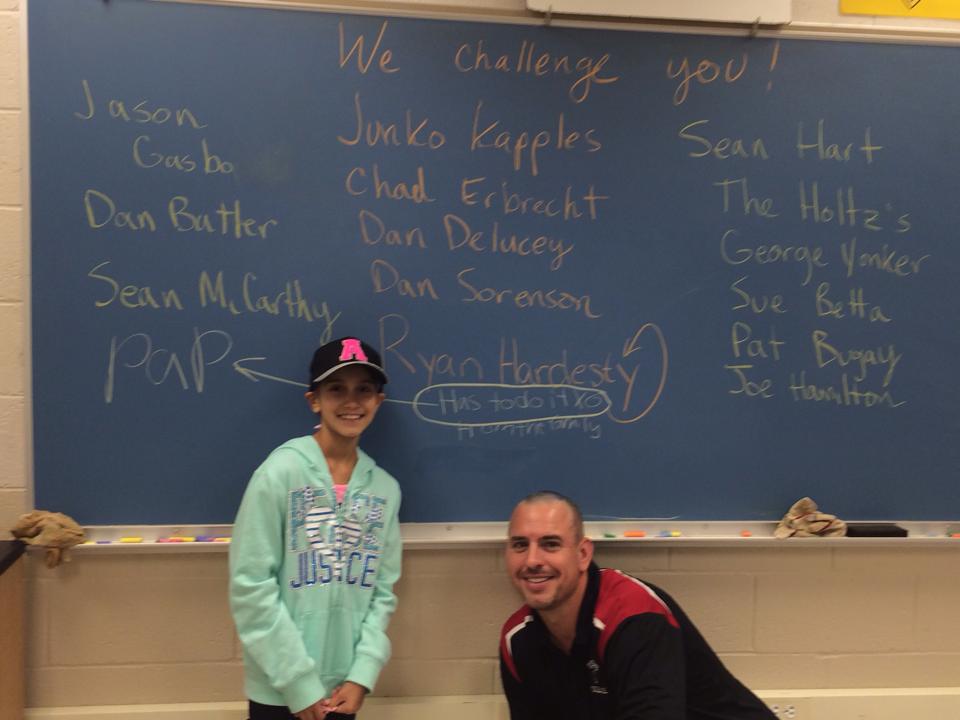 We challenge you!
Jason
Gasbo
Dan Butler
Sean McCarthy
pap
Junko Kapples
Chad Erbrecht
Dan Delucey
Dan Sorenson
Ryan Hardesty
Has to do it xo
from the family
Sean Hart
The Holtz's
George Yonker
Sue Betta
Pat Bugay
Joe Hamilton
A
PEACE
JUSTICE